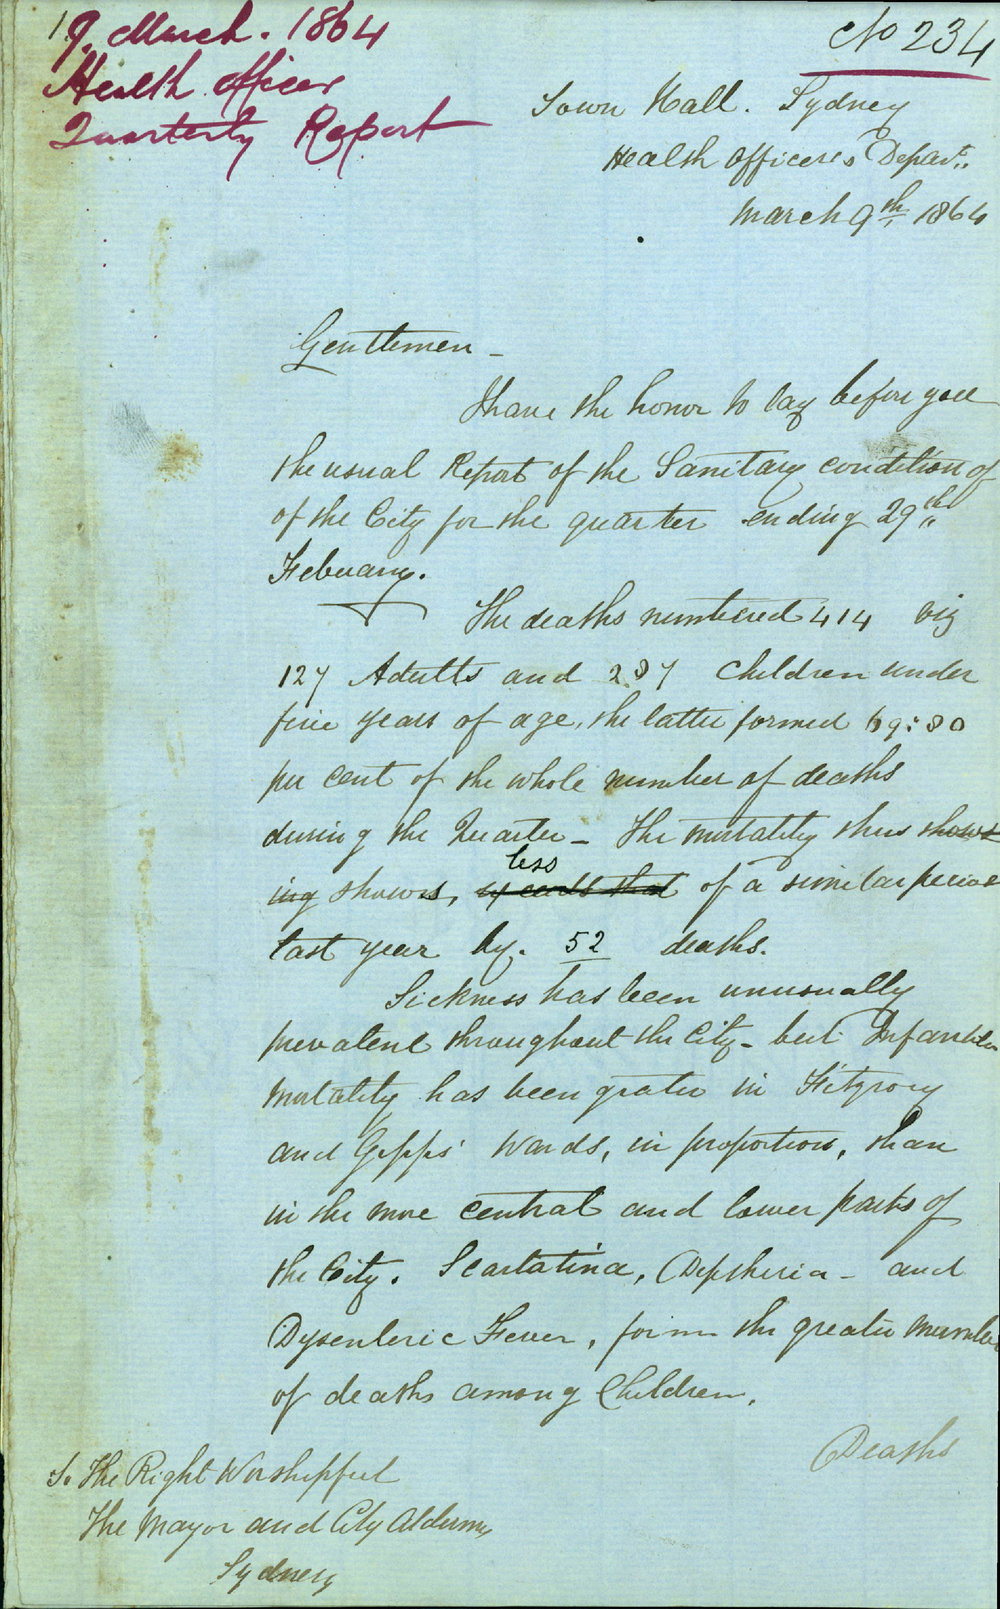 19. March. 1864
Health officer
Quarterly Report
No 234
Town Hall. Sydney
Health Officers Depart.
March 9th 1864
Gentlemen -
I have the honor to lay before you
the usual Report of the Sanitary condition of
of the City for the quarter ending 29th
February.
The deaths numbered 414 viz
127 Adults and 287 Children under
five years of age, the latter formed 69:80
per cent of the whole number of deaths
during the Quarter - The mortality thus shows
less
ing shows, of a similar period
last year by. 52 deaths.
Sickness has been unusually
prevalent throughout the City - but Infantile
mortality has been greater in Fitzroy
and Gipps' Wards, in proportion, than
in the more central and lower parts of
the City. Scarlatina, Diptheria - and
Dysenteric Fever, form the greater number
of deaths among Children.
Deaths
To The Right Worshipful
The Mayor and City Aldermen
Sydney